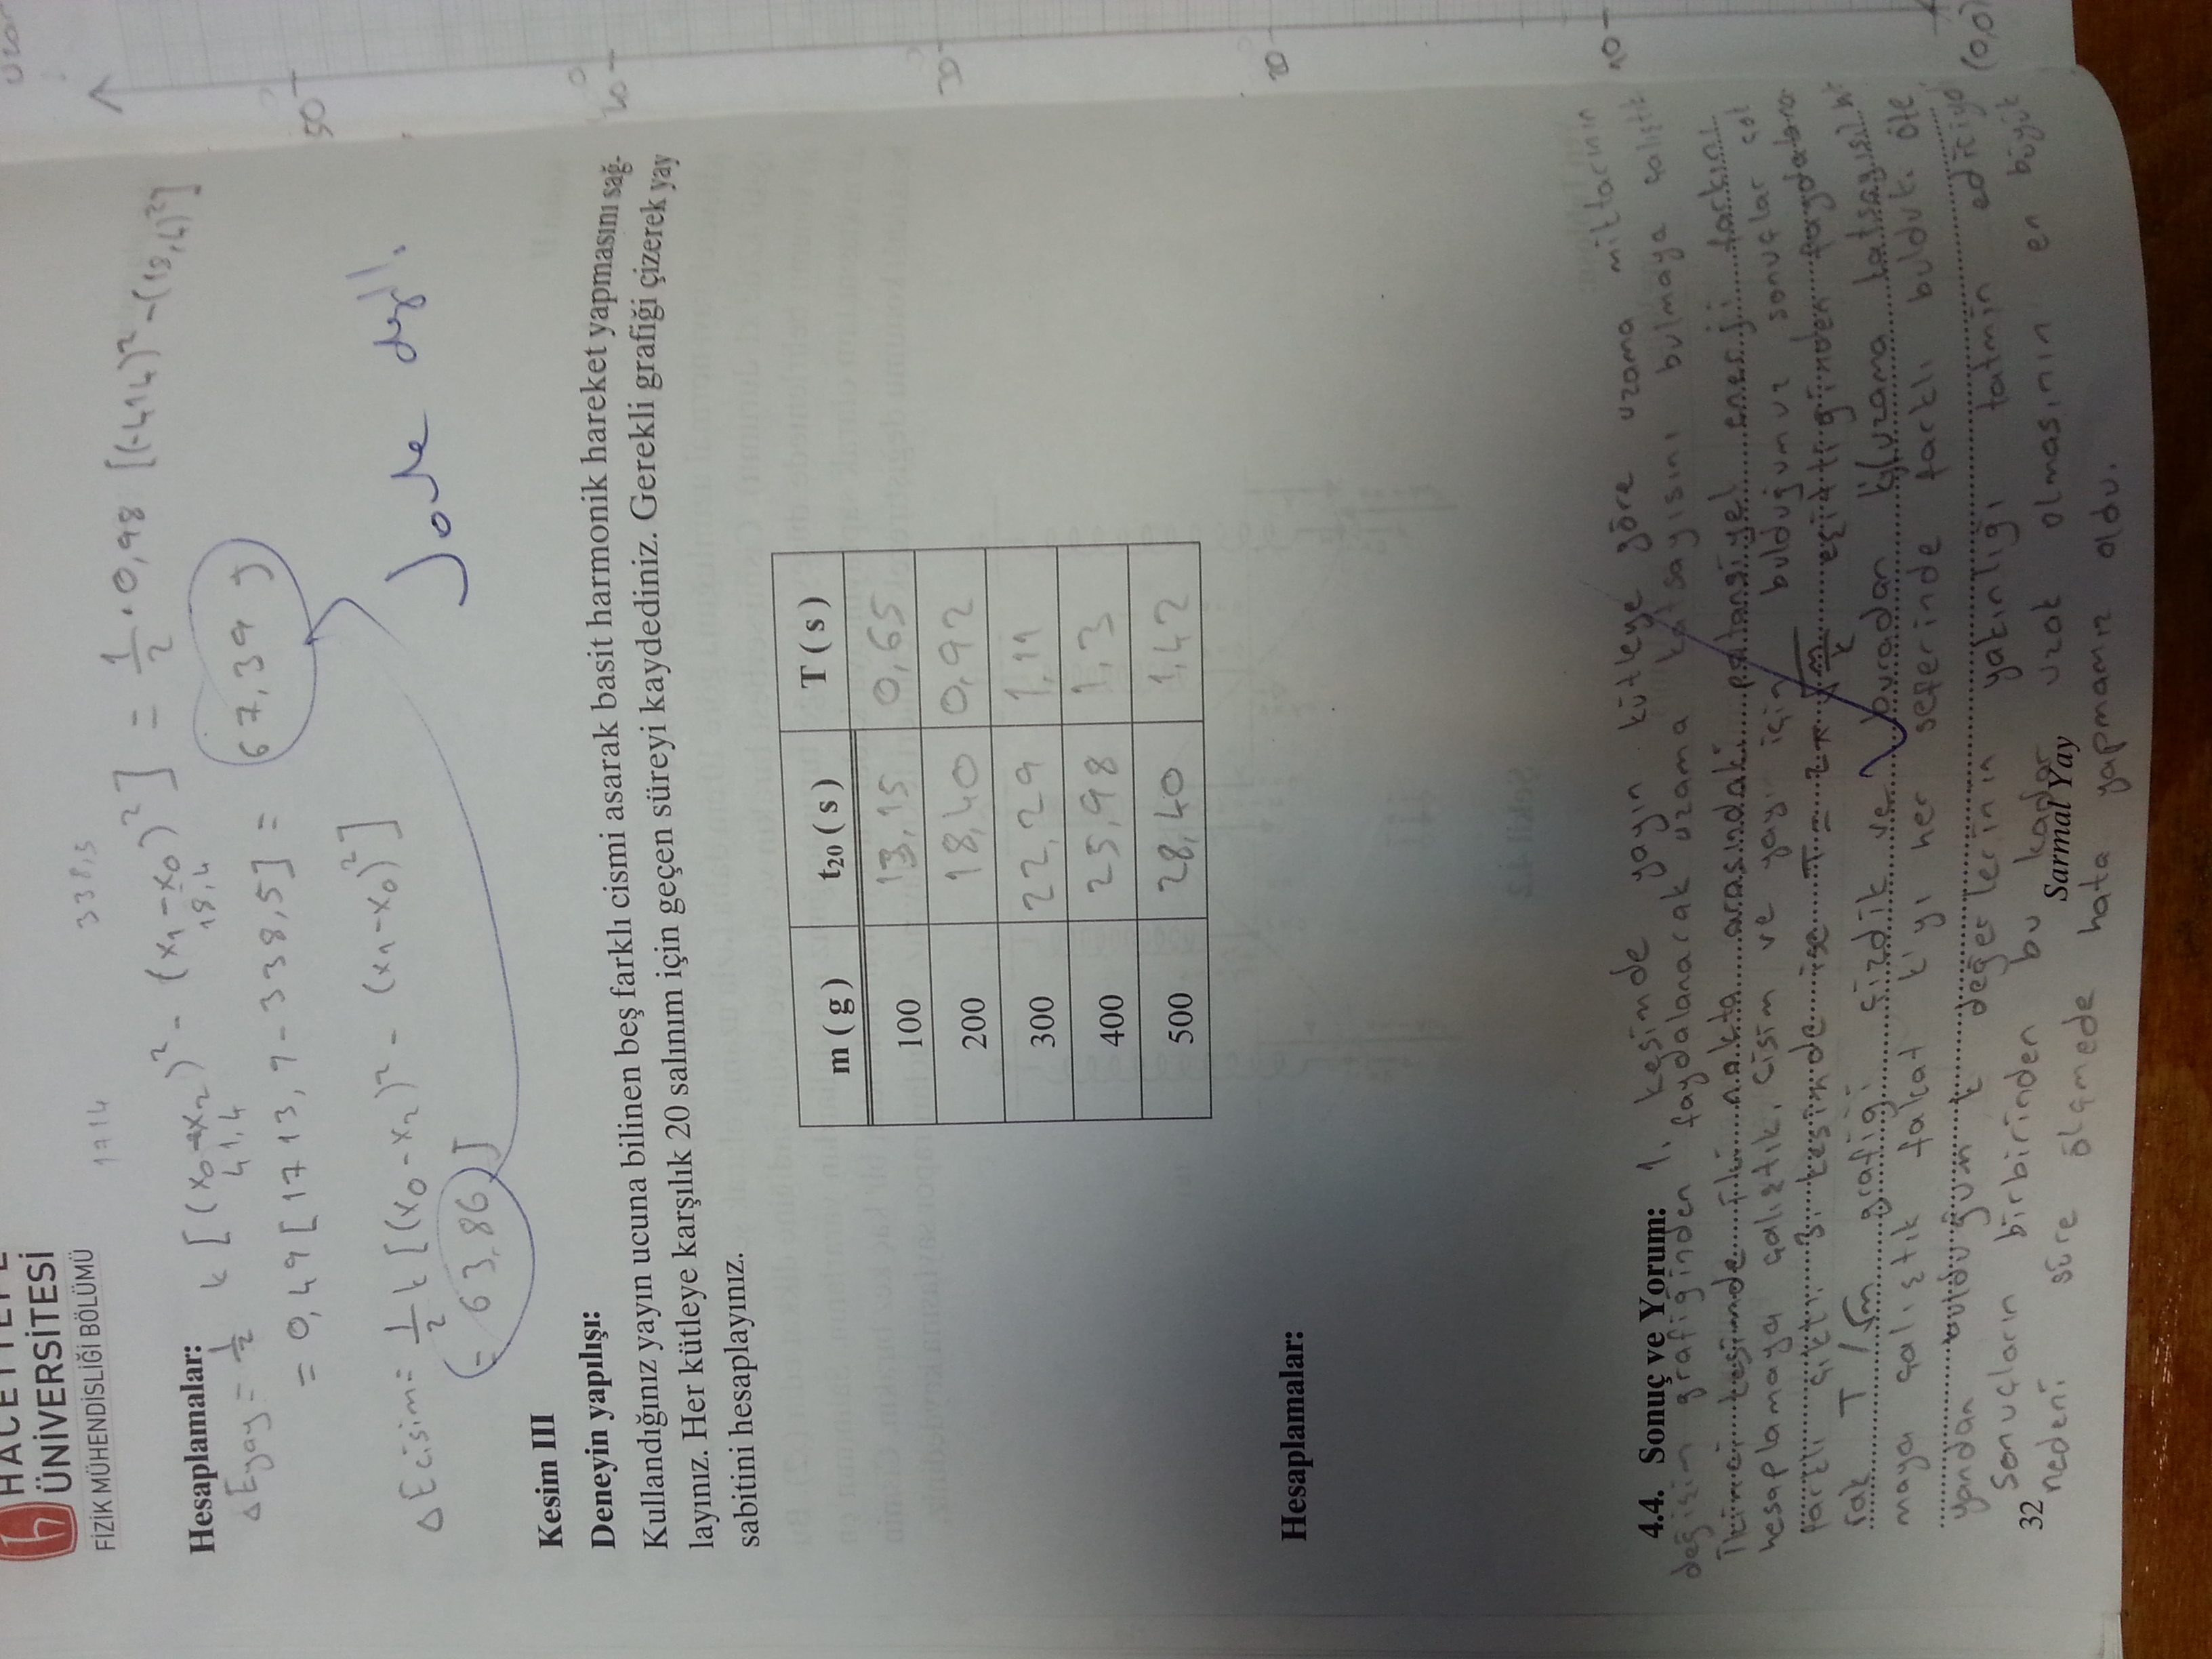 HACETTEPE
ÜNİVERSİTESİ
FİZİK MÜHENDİSLİĞİ BÖLÜMÜ
1714 338,5
Hesaplamalar:
ΔEyay = 1/2 k [(x0-x2)² - (x1-x0)²] = 1/2 · 0,98 [(-414)² - (18,4)²]
41,4 18,4
= 0,49 [1713,9 - 338,5] = 67,39 J
ΔEcisim = 1/2 k [(x0-x2)² - (x1-x0)²]
= 63,86 J
Joule değil!
Kesim III
Deneyin yapılışı:
Kullandığınız yayın ucuna bilinen beş farklı cismi asarak basit harmonik hareket yapmasını sağ-
layınız. Her kütleye karşılık 20 salınım için geçen süreyi kaydediniz. Gerekli grafiği çizerek yay
sabitini hesaplayınız.
m ( g ) t20 ( s ) T ( s )
100 13,15 0,65
200 18,40 0,92
300 22,29 1,11
400 25,98 1,3
500 28,40 1,42
Hesaplamalar:
4.4. Sonuç ve Yorum: 1. kesimde yayın kütleye göre uzama miktarının
değişim grafiğinden faydalanarak uzama katsayısını bulmaya çalıştık
İkinci kesimde iki nokta arasındaki potansiyel enerji farkını
hesaplamaya çalıştık. Cisim ve yayı için bulduğumuz sonuçlar çok
farklı çıktı. 3. kesimde ise T = 2π √m/k eşitliğinden faydalana-
rak T/√m grafiği çizdik ve buradan k'yı (uzama katsayısı)
maya çalıştık fakat k'yı her seferinde farklı bulduk. Öte
yandan bulduğum k değerlerinin yakınlığı tatmin ediciydi
Sonuçların birbirinden bu kadar uzak olmasının en büyük
nedeni süre ölçmede hata yapmamız oldu.
32
Sarmal Yay
50
40
30
20
10
(0,0)